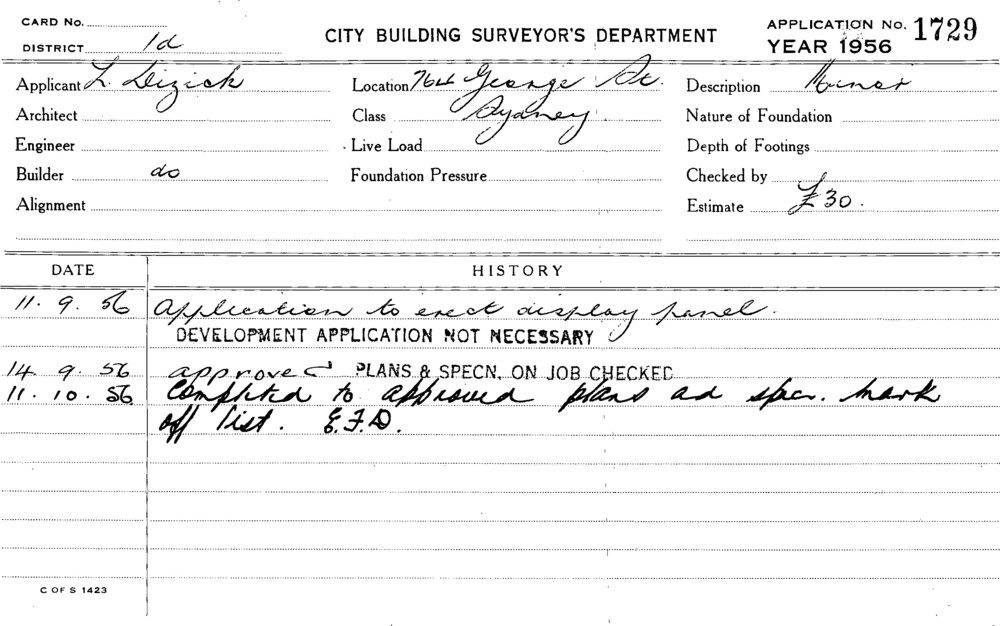 CARD No.
DISTRICT 1d
CITY BUILDING SURVEYOR'S DEPARTMENT
APPLICATION No. 1729
YEAR 1956
Applicant L. Dizick
Location 764 George St.
Description Minor
Architect
Class Sydney
Nature of Foundation
Engineer
Live Load
Depth of Footings
Builder do
Foundation Pressure
Checked by
Alignment
Estimate £30.
DATE HISTORY
11. 9. 56 Application to erect display panel.
DEVELOPMENT APPLICATION NOT NECESSARY
14. 9. 56 approved PLANS & SPECN. ON JOB CHECKED
11. 10. 56 Completed to approved plans ad specn. mark
off list. E.F.D.
C OF S 1423